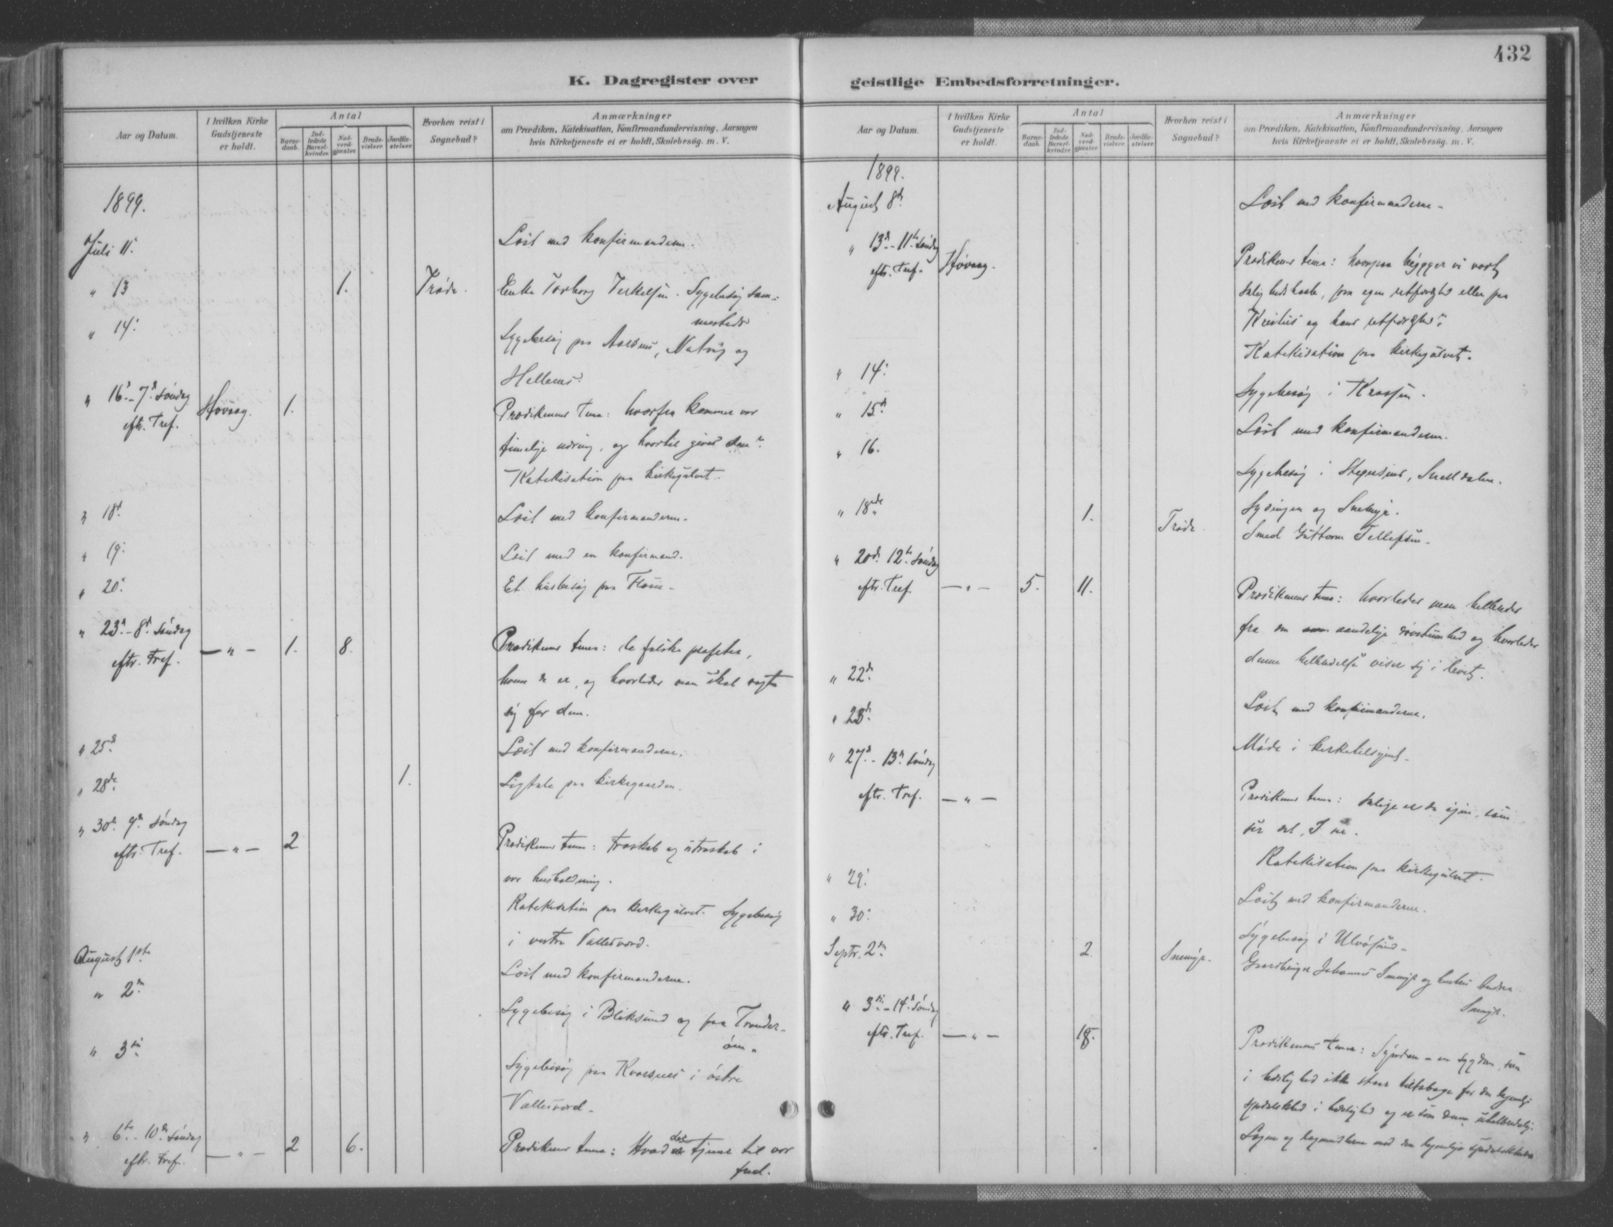 432
K. Dagregister over geistlige Embedsforretninger.
Aar og Datum. I hvilken Kirke Gudstjeneste er holdt. Antal Barnedaab. Indledede Barselkvinder Nadverdgjæster Brudevielser Jordfæstelser Hvorhen reist i Sognebud? Anmærkninger om Prædiken, Katekisation, Konfirmandundervisning, Aarsagen hvis Kirketjeneste ei er holdt, Skolebesøg. m. V.
1899.
Juli 11. Læst med konfirmanderne.
" 13 1. Trøde. Enke Torborg Terkelsen. Sygebesøg sam-
mesteds
" 14. Sygebesøg paa Aasnes, Natvig og
Hellenes.
" 16. - 7de Søndag Høvaag. 1. Prædikenens tema: hvorfra kommer vor
eft. Tref. timelige næring, og hvortil gives den.
Katekisation paa kirkegulvet.
" 18de Læst med konfirmanderne.
" 19. Læst med en konfirmand.
" 20. Et husbesøg paa
" 23de - 8de Søndag
eftr. Tref. — " — 1. 8. Prædikenens tema: de falske profeter,
hvem de er, og hvorledes man skal vogte
sig for dem.
" 25de Læst med konfirmanderne.
" 28de 1. Ligtale paa kirkegaarden.
" 30de 9de Søndag
eftr. Tref. — " — 2 Prædikenens tema: troskab og utroskab i
vor husholdning.
Katekisation paa kirkegulvet. Sygebesøg
i vestre Vallesverd.
August 1ste Læst med konfirmanderne.
" 2den Sygebesøg i Bliksund og paa Tronder-
øen.
" 3die Sygebesøg paa Kvarsnes i østre
Vallesverd.
" 6te - 10de Søndag
eftr. Tref. — " — 2 6. Prædikenens tema: Hvad der tjener til vor
fred.
Aar og Datum. I hvilken Kirke Gudstjeneste er holdt. Antal Barnedaab. Indledede Barselkvinder Nadverdgjæster Brudevielser Jordfæstelser Hvorhen reist i Sognebud? Anmærkninger om Prædiken, Katekisation, Konfirmandundervisning, Aarsagen hvis Kirketjeneste ei er holdt, Skolebesøg. m. V.
1899.
August 8de Læst med konfirmanderne.
" 13de - 11te Søndag
eftr. Tref. Høvaag. Prædikenens tema: hvorpaa bygger vi vort
salighedshaab, paa egen retfærdighed eller paa
Kristus og hans retfærdighed.
Katekisation paa kirkegulvet.
" 14. Sygebesøg i
" 15de Læst med konfirmanderne.
" 16. Sygebesøg i
" 18de 1. Trøde. Smed Guttorm Tellefsen.
" 20de 12te Søndag
eftr. Tref. — " — 5. 11. Prædikenens tema: hvorledes man helbredes
fra den aandelige døvstumhed og hvorledes
denne helbredelse viser sig i livet.
" 22de Læst med konfirmanderne.
" 23de Møde i kirketilsynet.
" 27de - 13de Søndag
eftr. Tref. — " — Prædikenens tema: salige er de øjne, som
ser det, I ser.
Katekisation paa kirkegulvet.
" 29. Læst med konfirmanderne.
" 30. Sygebesøg i Ulvøsund.
Septr. 2den 2. Snemyr. Gaardbruger Johannes Snemyr og hustru
Snemyr.
" 3die - 14de Søndag
eftr. Tref. — " — 18. Prædikenens tema: Synden - en sygdom, som
i hæslighed ikke staar tilbage for den legemlige
spedalskhed i hæslighed og er som denne uhelbredelig.